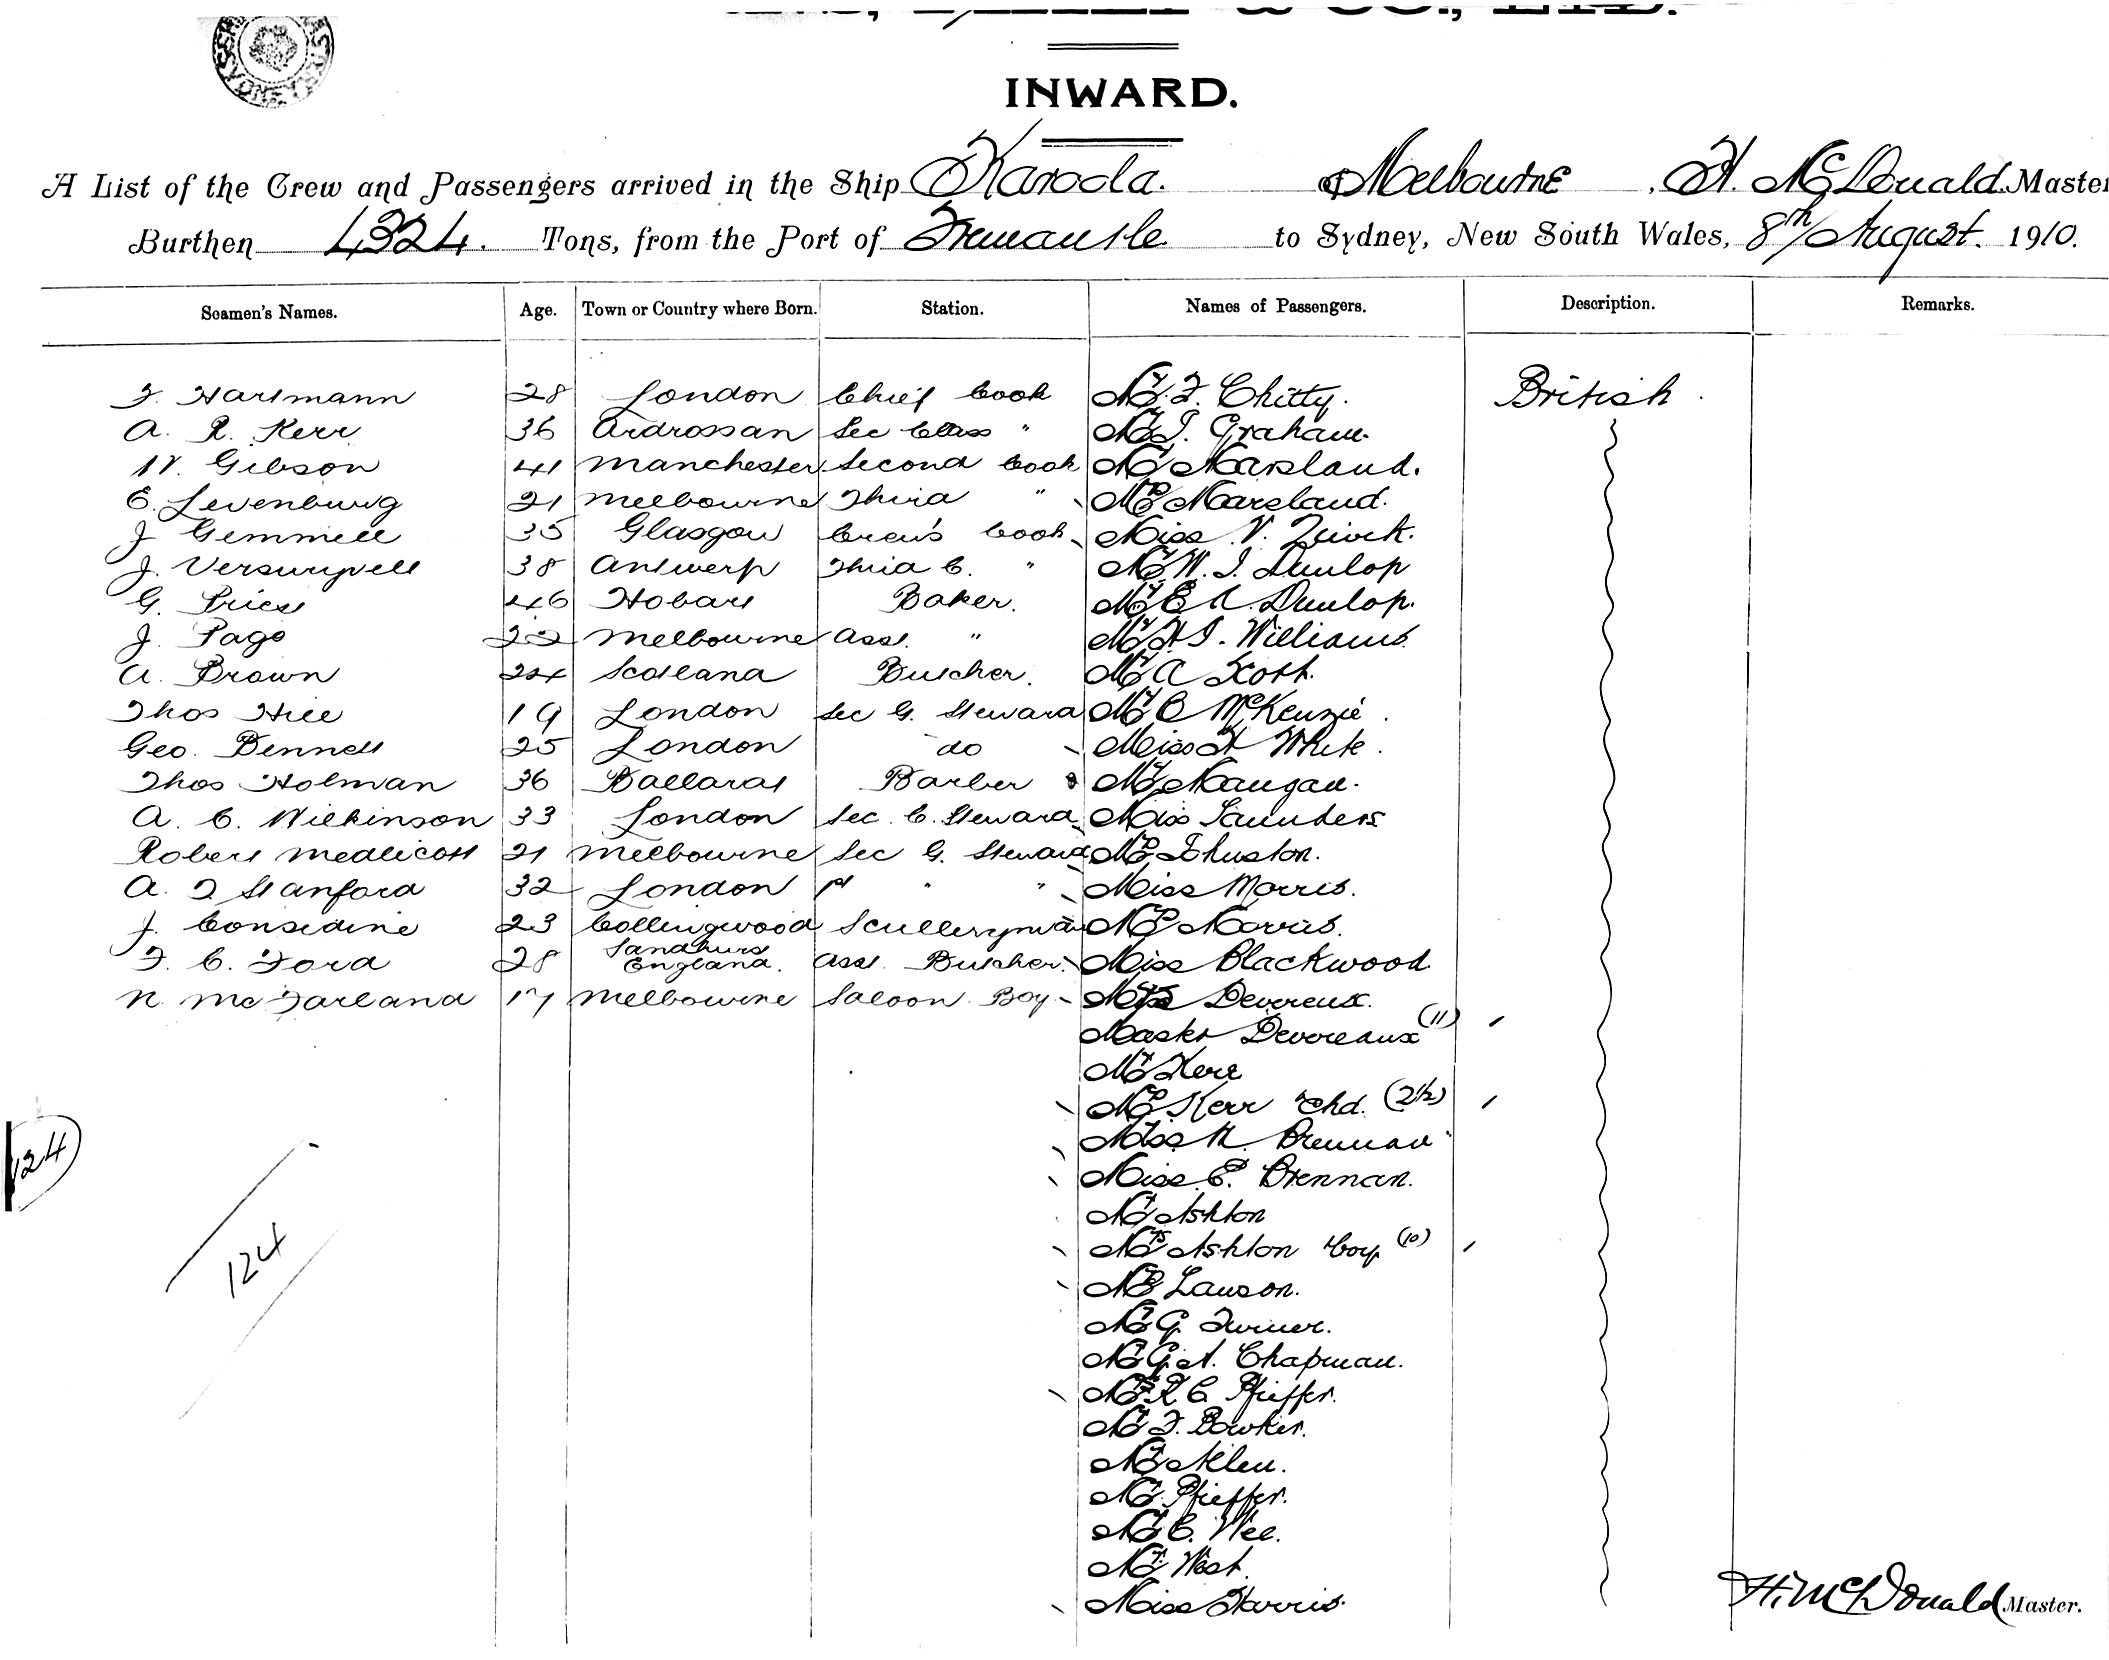 INWARD.
A List of the Crew and Passengers arrived in the Ship Karoola. of Melbourne, H. McDonald. Master
Burthen 4324. Tons, from the Port of Fremantle to Sydney, New South Wales, 8th August. 1910.
Seamen's Names. Age. Town or Country where Born. Station. Names of Passengers. Description. Remarks.
F. Hartmann 28 London Chief Cook Mr. F. Chitty. British.
A. R. Kerr 36 Ardrossan Sec Class " Mr J. Graham.
W. Gibson 41 Manchester Second Cook Mr Marsland.
E. Levenburg 21 Melbourne Third " Mrs Marsland.
J Gemmell 35 Glasgow Crew's Cook Miss V.
J. Verswyvell 38 Antwerp Third C. " Mr W. J. Dunlop
G. Priess 46 Hobart Baker. Mr E A. Dunlop.
J. Page 22 Melbourne Asst. " Mr H J. Williams.
A. Brown 24 Scotland Butcher. Mr A Scott.
Thos Hill 19 London Sec G. Steward Mr C McKenzie.
Geo. Bennett 25 London do Miss H White.
Thos Holman 36 Ballarat Barber Mr Maugan.
A. C. Wilkinson 33 London Sec. C. Steward Miss Saunders
Robert Medlicott 21 Melbourne Sec G. Steward Mrs Johnston.
A. J Stanford 32 London " " Miss Morris.
J. Considine 23 Collingwood Sculleryman Mrs Morris.
F. C. Ford 28 Sandhurst England. Asst. Butcher. Miss Blackwood
N. McFarland 17 Melbourne Saloon Boy Devereux.
Master Devereaux (11)
Mr Kerr
Mrs Kerr Chd. (2½)
Miss M. Brennan
Miss E. Brennan.
Mr Ashton
Mrs Ashton boy (10)
Mrs Lawson.
Mr G. Turner.
Mr G. A. Chapman.
Mrs R. C Pfieffer.
Mr F. Bowker.
Mr Allen.
Mr. Pfieffer.
Mr C. Wee.
Mr. West.
Miss Harris.
124
124
H. McDonald Master.